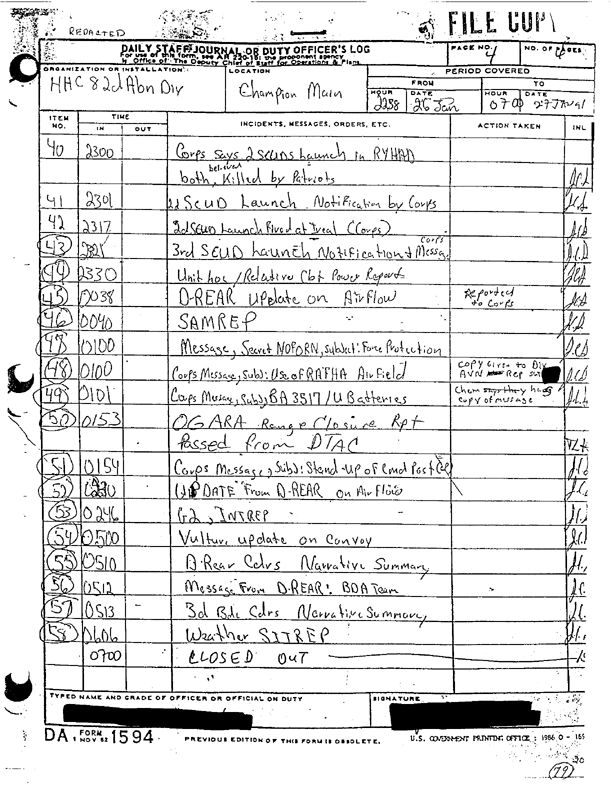 REDACTED
FILE COPY
DAILY STAFF JOURNAL OR DUTY OFFICER'S LOG
For use of this form, see AR 220-15; the proponent agency
is Office of The Deputy Chief of Staff for Operations & Plans
PAGE NO. 4
NO. OF PAGES 4
ORGANIZATION OR INSTALLATION
HHC 82d Abn Div
LOCATION
Champion Main
PERIOD COVERED
FROM
TO
HOUR DATE HOUR DATE
2258 26 Jan 0700 27 Jan 91
ITEM NO. TIME IN OUT INCIDENTS, MESSAGES, ORDERS, ETC. ACTION TAKEN INL
40 2300 Corps says 2 scuds launch in RYHAD
believed
both, Killed by Patriots
41 2301 SCUD Launch Notification by Corps
42 2317 2d SCUD Launch Fired at (Corps)
43 3rd SCUD Launch Notification Corps Message
44 2330 Unit loc/Relative Cbt Power Report
45 0038 D-REAR update on Airflow Reported to Corps
46 0040 SAMREP
47 0100 Message, Secret NOFORN, subject: Force Protection
48 0100 Corps Message, Subj: Use of RAFHA Air Field Copy Given to Div AVN Rep
49 0101 Corps Message, Subj: BA 3517/U Batteries Chem copy of message
50 0153 OGARA Range Closure Rpt
Passed from DTAC
51 0154 Corps Message, Subj: Stand-up of Cmd Post
52 UPDATE From D-REAR on Air Flow
53 0246 G2, INTREP
54 0500 Vulture update on Convoy
55 0510 D-Rear Cdrs Narrative Summary
56 0512 Message From D-REAR: BDA Team
57 0513 3d Bde Cdrs Narrative Summary
58 0606 Weather SITREP
0700 CLOSED OUT
TYPED NAME AND GRADE OF OFFICER OR OFFICIAL ON DUTY
SIGNATURE
DA FORM 1 NOV 62 1594
PREVIOUS EDITION OF THIS FORM IS OBSOLETE.
U.S. GOVERNMENT PRINTING OFFICE : 1986 O - 165
79